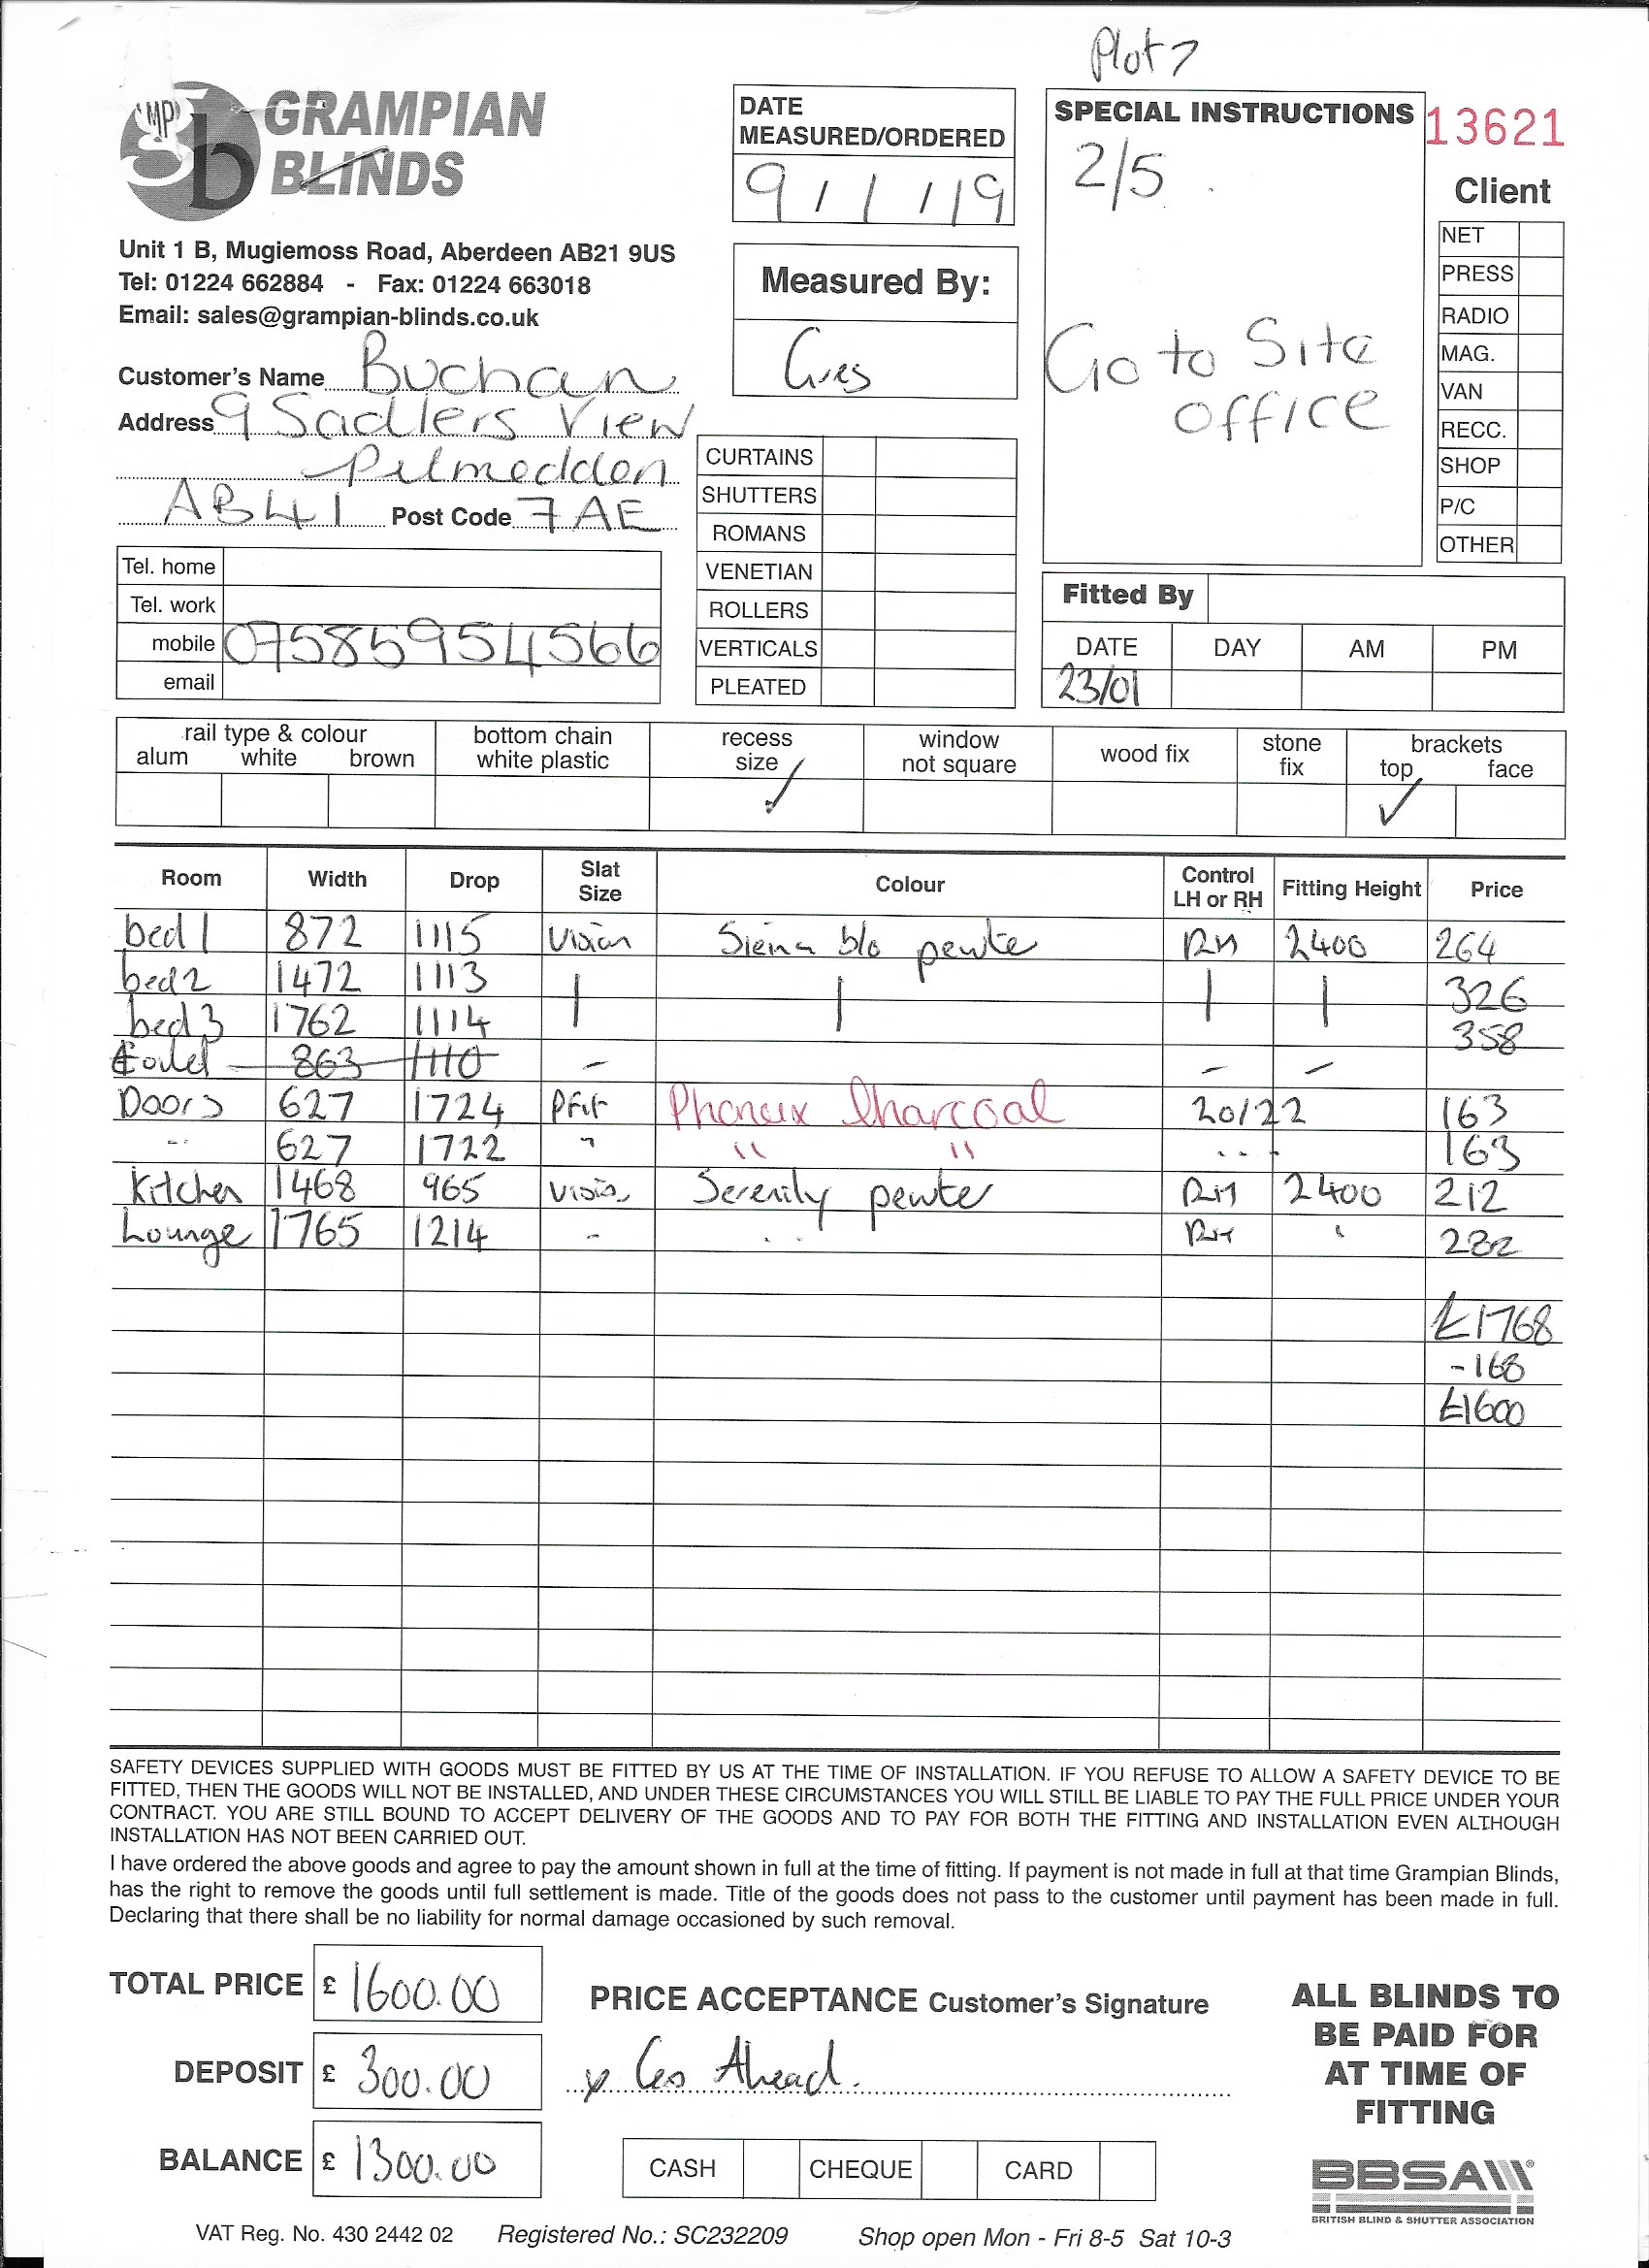 Plot 7
GRAMPIAN
BLINDS
Unit 1 B, Mugiemoss Road, Aberdeen AB21 9US
Tel: 01224 662884 - Fax: 01224 663018
Email: sales@grampian-blinds.co.uk
Customer's Name Buchan
Address 9 Sadlers View
Pitmedden
AB41 Post Code 7AE
Tel. home
Tel. work
mobile 07585954566
email
DATE
MEASURED/ORDERED
9/1/19
Measured By:
CURTAINS
SHUTTERS
ROMANS
VENETIAN
ROLLERS
VERTICALS
PLEATED
SPECIAL INSTRUCTIONS
2/5
Go to Site
office
13621
Client
NET
PRESS
RADIO
MAG.
VAN
RECC.
SHOP
P/C
OTHER
Fitted By
DATE DAY AM PM
23/01
rail type & colour
alum white brown
bottom chain
white plastic
recess
size ✓
window
not square
wood fix
stone
fix
brackets
top face
✓
Room Width Drop Slat Size Colour Control LH or RH Fitting Height Price
bed 1 872 1115 Vision Siena b/o pewte RH 2400 264
bed 2 1472 1113 | | | | 326
bed 3 1762 1114 358
863 1110 - - -
Doors 627 1724 Pfit Phoneix Charcoal 20/22 163
" 627 1722 " " " " " 163
Kitchen 1468 965 Visio Serenity pewter RH 2400 212
Lounge 1765 1214 - " " RH " 282
£1768
-168
£1600
SAFETY DEVICES SUPPLIED WITH GOODS MUST BE FITTED BY US AT THE TIME OF INSTALLATION. IF YOU REFUSE TO ALLOW A SAFETY DEVICE TO BE
FITTED, THEN THE GOODS WILL NOT BE INSTALLED, AND UNDER THESE CIRCUMSTANCES YOU WILL STILL BE LIABLE TO PAY THE FULL PRICE UNDER YOUR
CONTRACT. YOU ARE STILL BOUND TO ACCEPT DELIVERY OF THE GOODS AND TO PAY FOR BOTH THE FITTING AND INSTALLATION EVEN ALTHOUGH
INSTALLATION HAS NOT BEEN CARRIED OUT.
I have ordered the above goods and agree to pay the amount shown in full at the time of fitting. If payment is not made in full at that time Grampian Blinds,
has the right to remove the goods until full settlement is made. Title of the goods does not pass to the customer until payment has been made in full.
Declaring that there shall be no liability for normal damage occasioned by such removal.
TOTAL PRICE £ 1600.00
DEPOSIT £ 300.00
BALANCE £ 1300.00
PRICE ACCEPTANCE Customer's Signature
x Go Ahead.
CASH CHEQUE CARD
ALL BLINDS TO
BE PAID FOR
AT TIME OF
FITTING
BBSA
BRITISH BLIND & SHUTTER ASSOCIATION
VAT Reg. No. 430 2442 02 Registered No.: SC232209 Shop open Mon - Fri 8-5 Sat 10-3